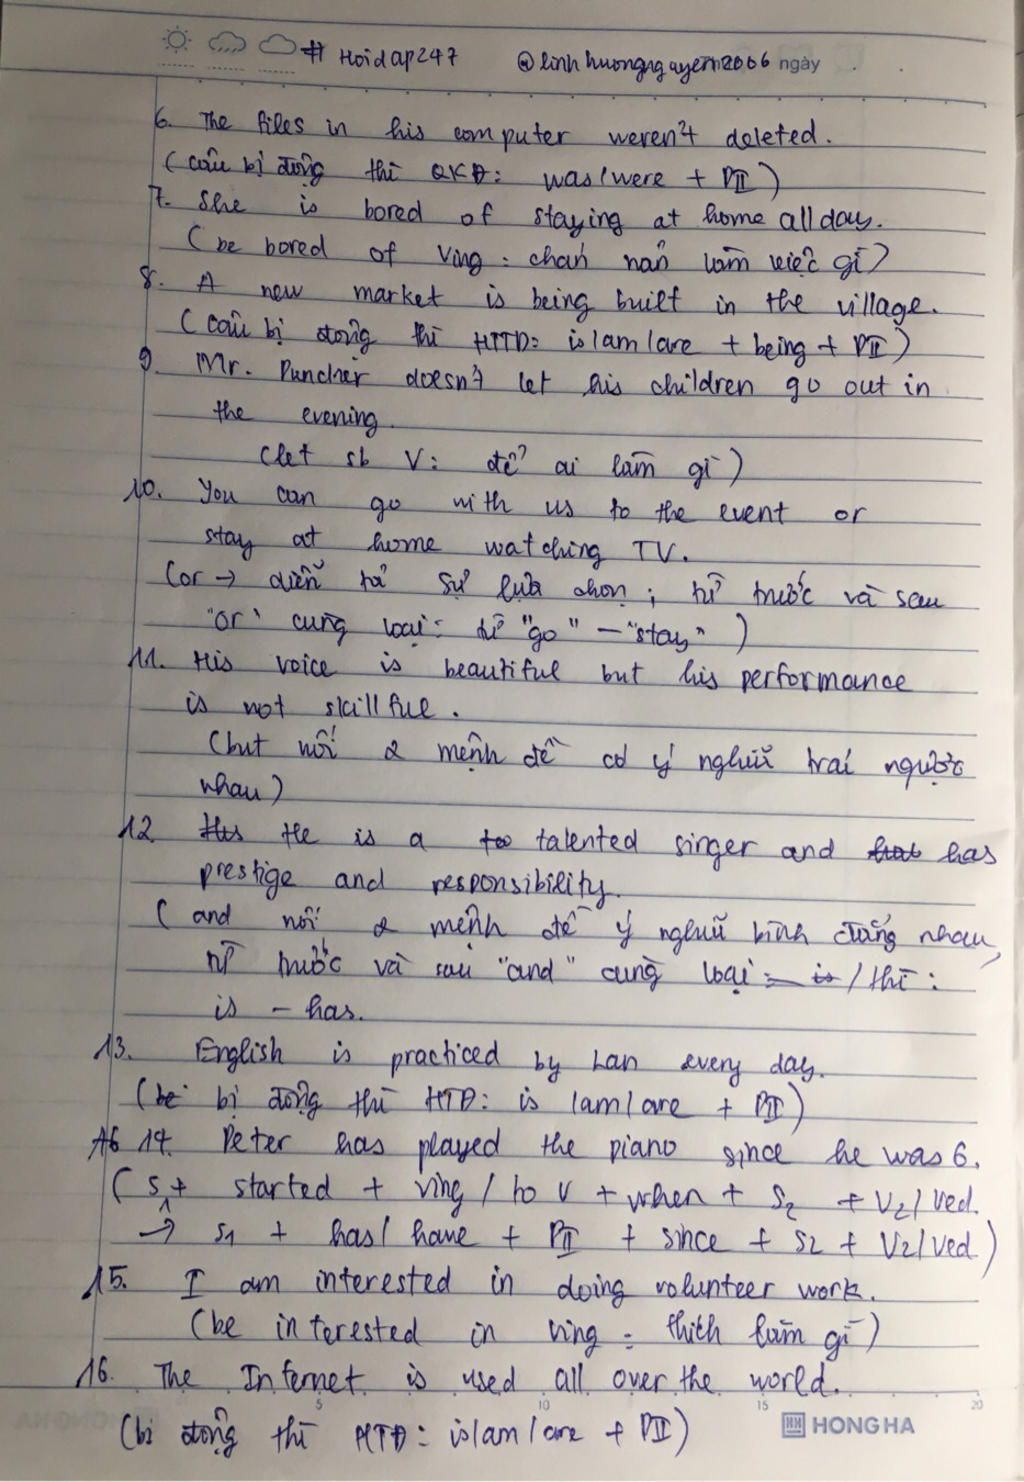 # Hoidap247 @linhhuongnguyen2006 ngày
6. The files in his computer weren't deleted.
(câu bị động thì QKĐ: was/were + PII)
7. She is bored of staying at home all day.
(be bored of Ving: chán nản làm việc gì)
8. A new market is being built in the village.
(câu bị động thì HTTD: is/am/are + being + PII)
9. Mr. Puncher doesn't let his children go out in
the evening.
(let sb V: để ai làm gì)
10. You can go with us to the event or
stay at home watching TV.
(or → diễn tả sự lựa chọn; từ trước và sau
"or" cùng loại: từ "go" - "stay")
11. His voice is beautiful but his performance
is not skillful.
(but nối 2 mệnh đề có ý nghĩa trái ngược
nhau)
12 He is a talented singer and has
prestige and responsibility.
(and nối 2 mệnh đề ý nghĩa bình đẳng nhau,
từ trước và sau "and" cùng loại /thì:
is - has.
13. English is practiced by Lan every day.
(bị động thì HTĐ: is /am/are + PII)
14. Peter has played the piano since he was 6.
(S1 + started + ving / to V + when + S2 + V2/ved.
→ S1 + has/have + PII + since + S2 + V2/ved.)
15. I am interested in doing volunteer work.
(be interested in Ving: thích làm gì)
16. The Internet is used all over the world.
5 10 15 20
(bị động thì HTĐ: is/am/are + PII)
HH HONG HA